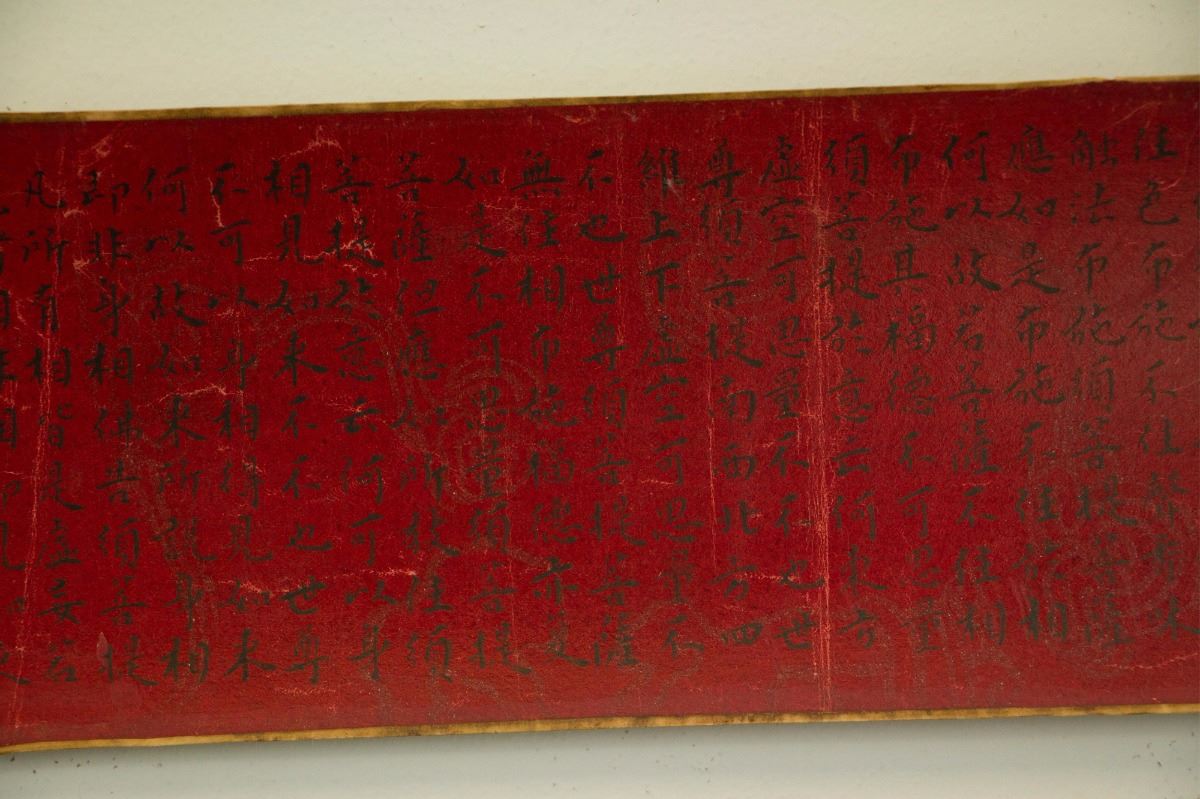 住色布施不住聲香味
觸法布施須菩提菩薩
應如是布施不住於相
何以故若菩薩不住相
布施其福德不可思量
須菩提於意云何東方
虛空可思量不不也世
尊須菩提南西北方四
維上下虛空可思量不
不也世尊須菩提菩薩
無住相布施福德亦復
如是不可思量須菩提
菩薩但應如所教住須
菩提於意云何可以身
相見如來不不也世尊
不可以身相得見如來
何以故如來所說身相
即非身相佛告須菩提
凡所有相皆是虛妄若
相非相即見